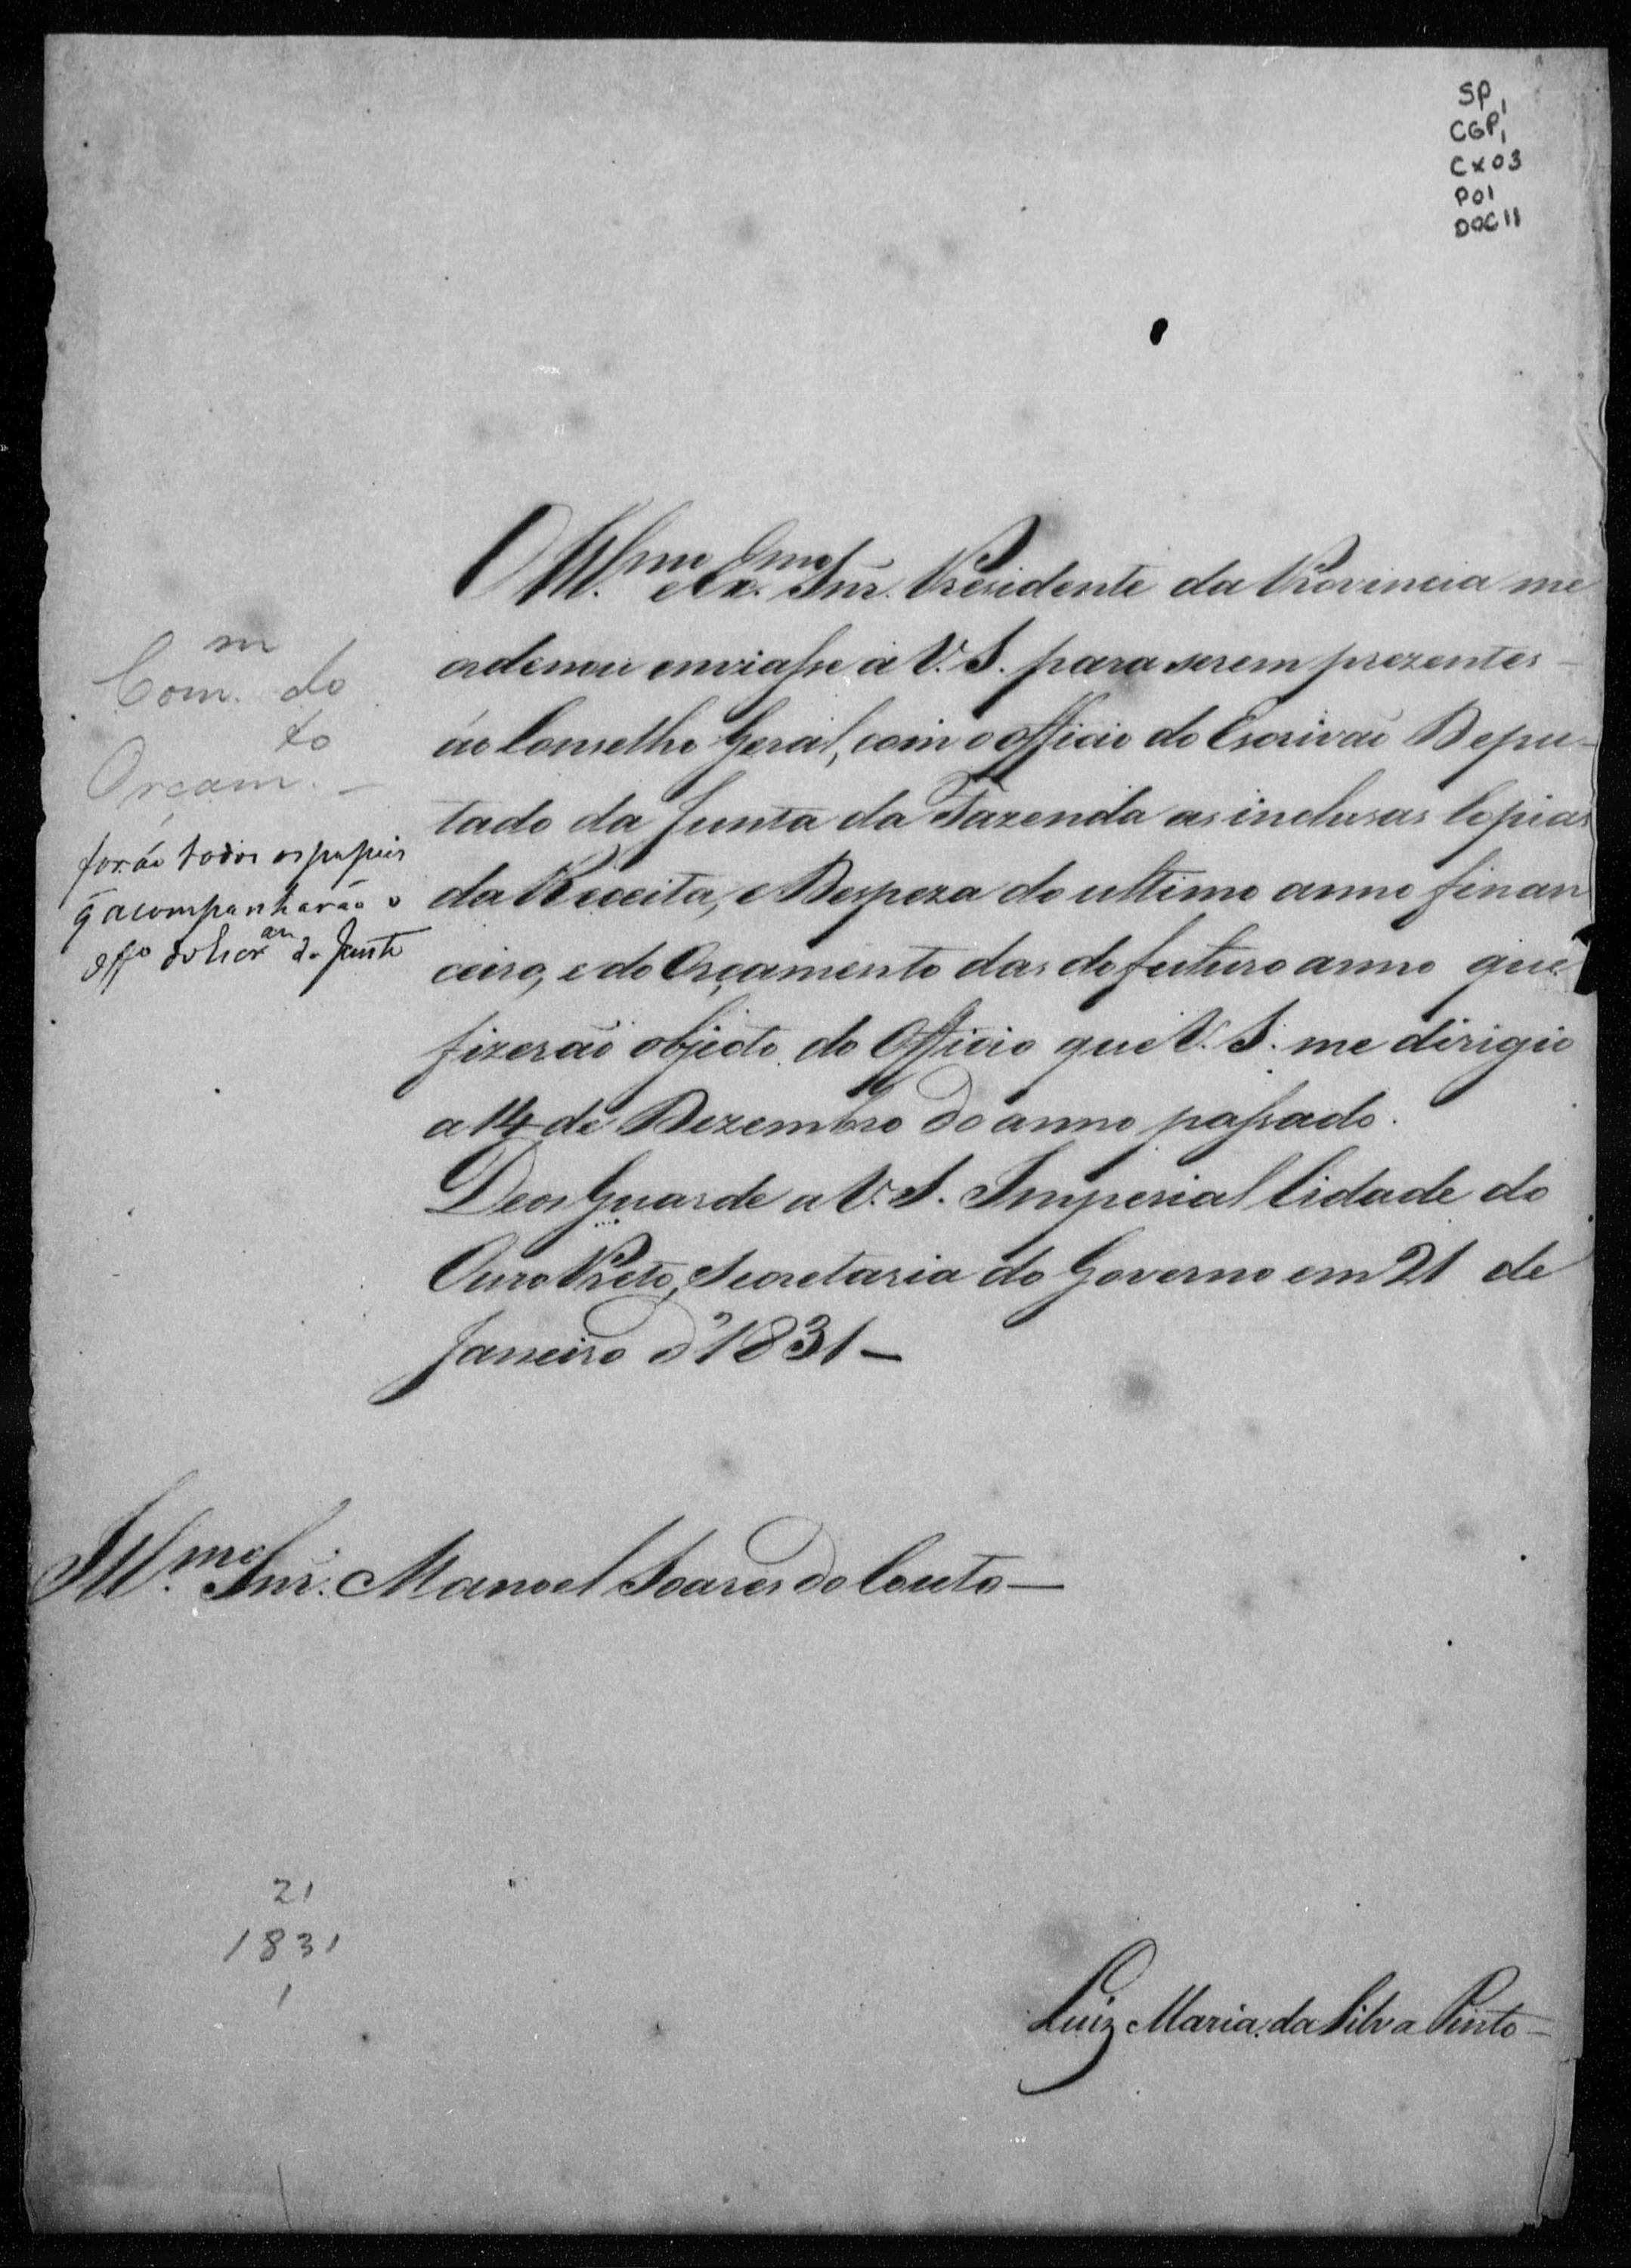 SP1
CGP1
Cx03
P01
DOC11
O Ill.mo e Ex.mo Snr. Presidente da Provincia me
ordenou enviasse a V. S. para serem prezentes
ao Conselho Geral, com o officio do Escrivão Depu-
tado da Junta da Fazenda as inclusas Copias
da Receita, e Despeza do ultimo anno finan
ceiro, e do Orçamento das do futuro anno que
fizerão objecto do Officio que V. S. me dirigio
a 14 de Dezembro do anno passado.
Deos Guarde a V. S. Imperial Cidade do
Ouro Preto, Secretaria do Governo em 21 de
Janeiro d'1831—
Com.m do
Orçam.to —
forão todos os papeis
q̃ acompanharão o
off.o do Escr.am da Junta
Ill.mo Snr. Manoel Soares do Couto—
21
1831
1
Luiz Maria da Silva Pinto—